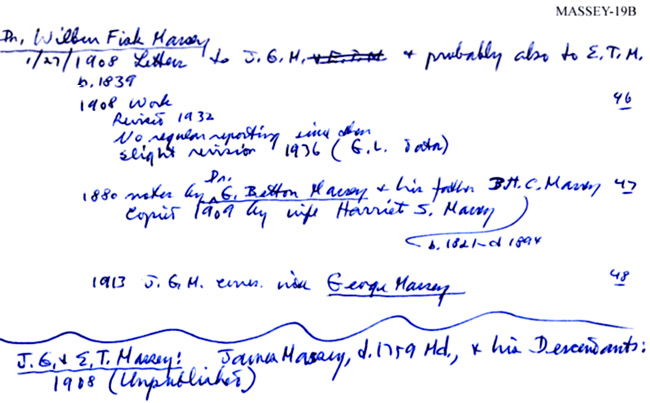 MASSEY-19B
Dr. Wilber Fisk Massey
1/27/1908 Letter to J.G.M. & E.T.M & probably also to E.T.M.
b. 1839
1908 Work 46
Revised 1932
No regular reporting since then
slight revision 1936 (G.L. data)
Dr.
1880 notes by G. Betton Massey & his father B.H.C. Massey 47
Copied 1909 by wife Harriet S. Massey
b. 1821-d 1894
1913 J.G.M. corres. with George Massey 48
J.G. & E.T. Massey: James Massey, d. 1759 Md., & his Descendants:
1908 (Unpublished)